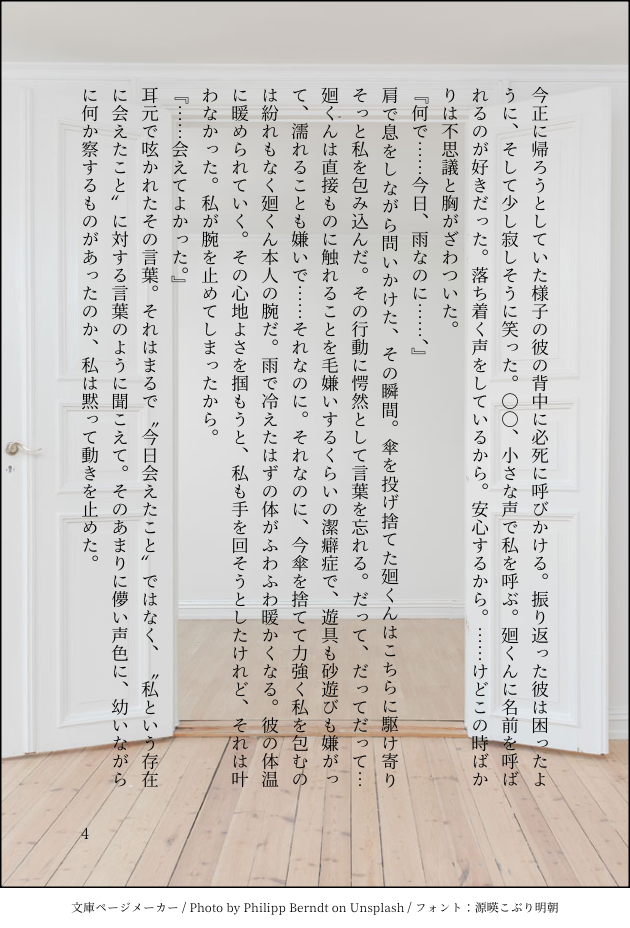 今正に帰ろうとしていた様子の彼の背中に必死に呼びかける。振り返った彼は困ったよ
うに、そして少し寂しそうに笑った。〇〇、小さな声で私を呼ぶ。廻くんに名前を呼ば
れるのが好きだった。落ち着く声をしているから。安心するから。……けどこの時ばか
りは不思議と胸がざわついた。
『何で……今日、雨なのに……、』
肩で息をしながら問いかけた、その瞬間。傘を投げ捨てた廻くんはこちらに駆け寄り
そっと私を包み込んだ。その行動に愕然として言葉を忘れる。だって、だってだって…
廻くんは直接ものに触れることを毛嫌いするくらいの潔癖症で、遊具も砂遊びも嫌がっ
て、濡れることも嫌いで……それなのに。それなのに、今傘を捨てて力強く私を包むの
は紛れもなく廻くん本人の腕だ。雨で冷えたはずの体がふわふわ暖かくなる。彼の体温
に暖められていく。その心地よさを掴もうと、私も手を回そうとしたけれど、それは叶
わなかった。私が腕を止めてしまったから。
『……会えてよかった。』
耳元で呟かれたその言葉。それはまるで〝今日会えたこと〟ではなく、〝私という存在
に会えたこと〟に対する言葉のように聞こえて。そのあまりに儚い声色に、幼いながら
に何か察するものがあったのか、私は黙って動きを止めた。
4
文庫ページメーカー / Photo by Philipp Berndt on Unsplash / フォント：源暎こぶり明朝